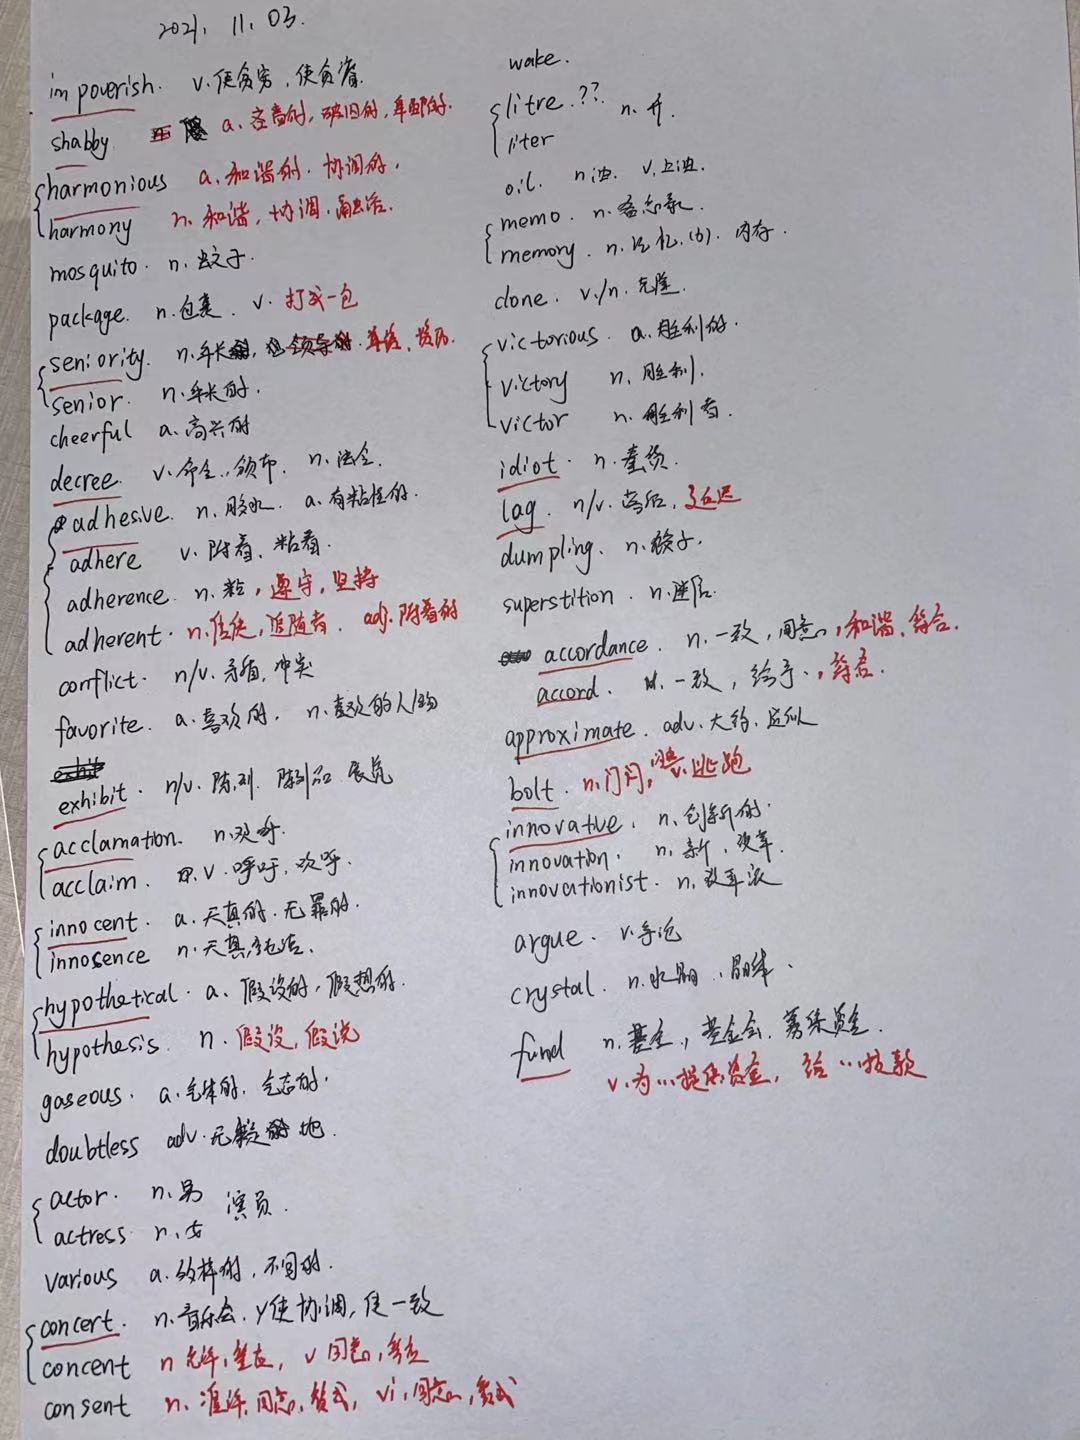 2021. 11. 03.
impoverish. v. 使贫穷, 使贫瘠.
shabby a. 吝啬的, 破旧的, 卑鄙的.
harmonious a. 和谐的. 协调的.
harmony n. 和谐, 协调. 融洽.
mosquito. n. 蚊子.
package. n. 包裹. v. 打成一包
seniority. n. 年长
senior. n. 年长的.
cheerful a. 高兴的
decree. v. 命令, 颁布. n. 法令.
adhesive. n. 胶水. a. 有粘性的.
adhere v. 附着, 粘着.
adherence. n. 粘, 遵守, 坚持
adherent. n. 信徒, 追随者. adj. 附着的
conflict. n/v. 矛盾, 冲突
favorite. a. 喜欢的. n. 喜欢的人/物
exhibit. n/v. 陈列. 陈列品 展览
acclamation. n. 欢呼.
acclaim. v. 呼吁, 欢呼.
innocent. a. 天真的. 无罪的.
innosence n. 天真, 纯洁.
hypothetical. a. 假设的, 假想的.
hypothesis. n. 假设, 假说
gaseous. a. 气体的, 气态的.
doubtless adv. 无疑地.
actor. n. 男 演员.
actress n. 女
various a. 各样的, 不同的.
concert. n. 音乐会. v 使协调, 使一致
concent n 允许, v 同意,
consent n. 准许, 同意, 赞成, vi, 同意, 赞成
wake.
litre.?? n. 升.
liter
oil. n 油. v. 上油.
memo. n. 备忘录.
memory. n. 记忆(力). 内存.
clone. v./n. 克隆.
victorious. a. 胜利的.
victory n. 胜利.
victor n. 胜利者.
idiot. n. 蠢货.
lag. n/v. 落后, 延迟
dumpling. n. 饺子.
superstition. n. 迷信.
accordance. n. 一致, 同意, 和谐, 符合.
accord. 一致, 给予, 符合.
approximate. adv. 大约. 近似
bolt. n. 门闩, v. 逃跑
innovative. n. 创新的.
innovation. n. 新, 改革.
innovationist. n. 改革派
argue. v. 争论
crystal. n. 水晶. 晶体.
fund n. 基金, 基金会. 募集资金.
v. 为…提供资金, 给…拨款